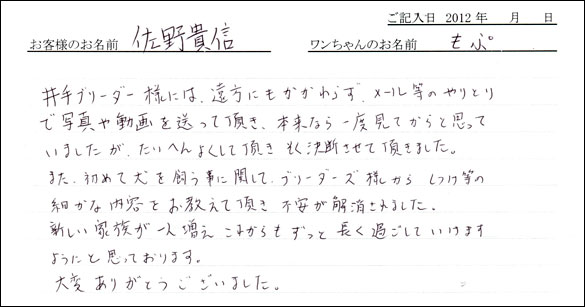 ご記入日 2012 年 月 日
お客様のお名前 佐野貴信 ワンちゃんのお名前 もぷ
井手ブリーダー様には、遠方にもかかわらず、メール等のやりとり
で写真や動画を送って頂き、本来なら一度見てからと思って
いましたが、たいへんよくして頂き 決断させて頂きました。
また、初めて犬を飼う事に関して、ブリーダーズ様から しつけ等の
細かな内容をお教えて頂き 不安が解消されました。
新しい家族が一人増え これからもずっと長く過ごしていけます
ようにと思っております。
大変ありがとうございました。